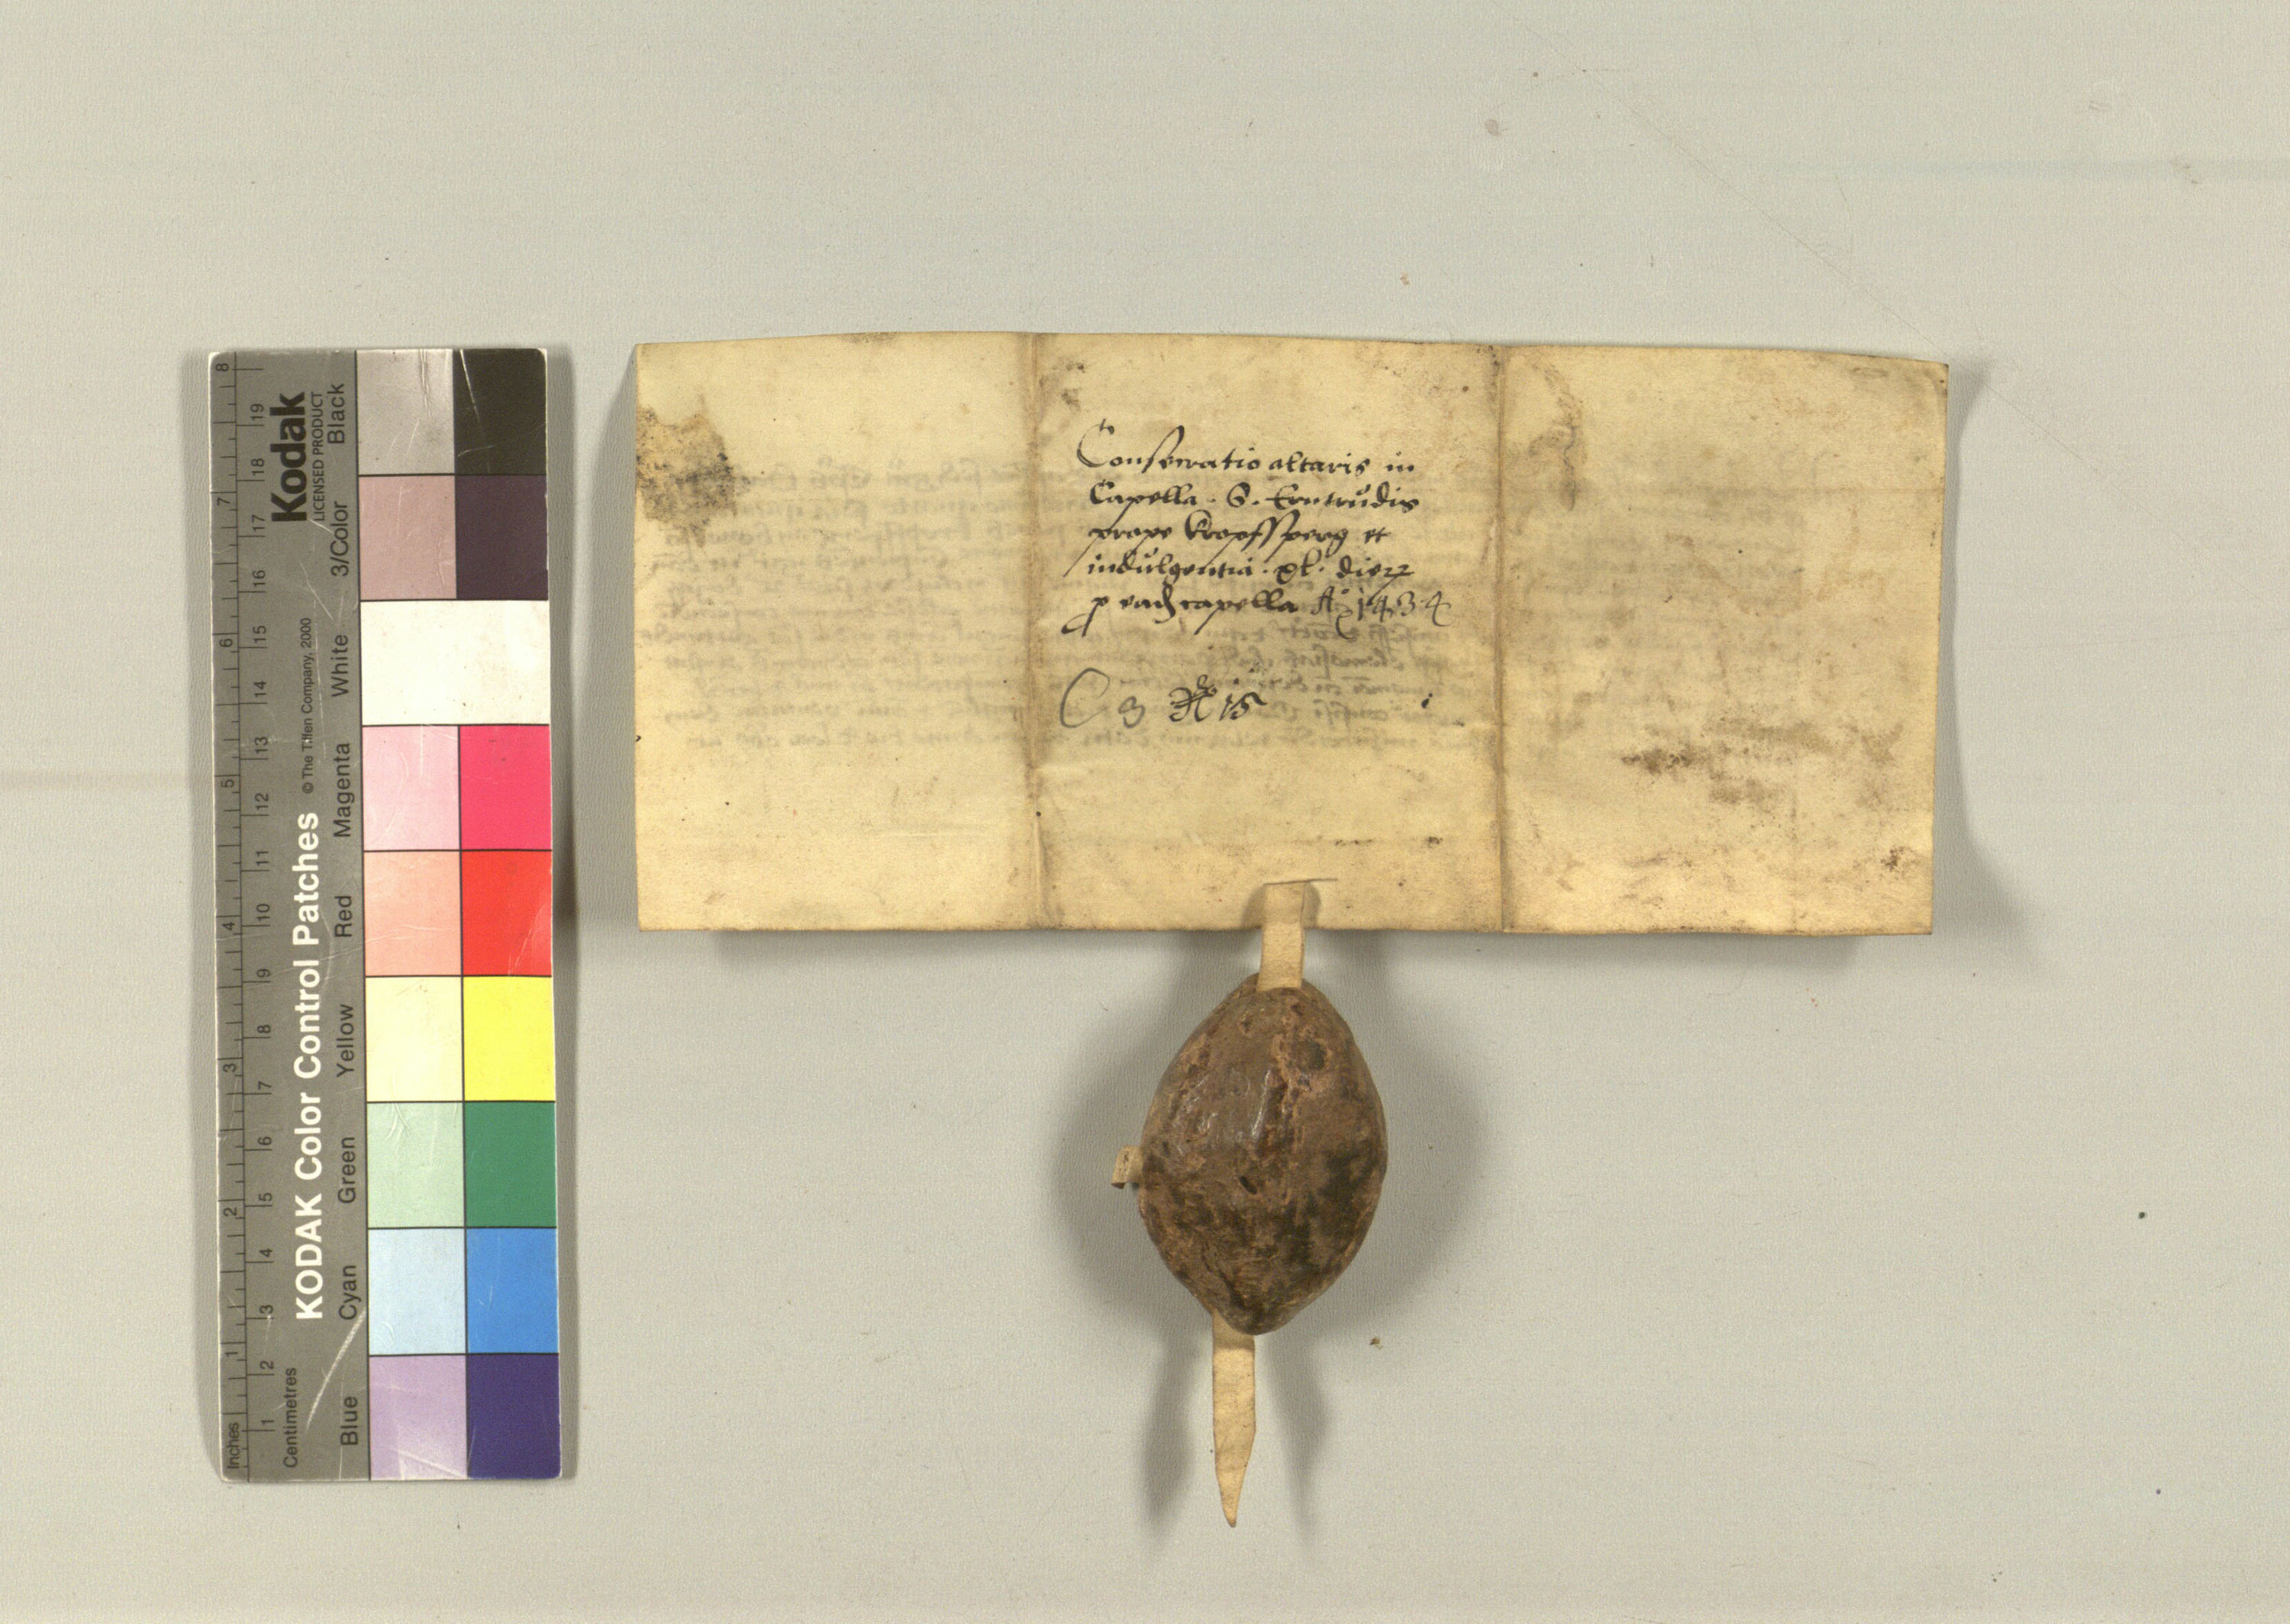 Consecratio altaris in
Capella . S . Erntrudis
prope Kropfsperg et
indulgentia . xl . dierꝝ
ꝓ eadꝫ capella Aº 1434
C 3 № 15
Kodak
LICENSED PRODUCT
KODAK Color Control Patches
© The Tiffen Company, 2000
Blue Cyan Green Yellow Red Magenta White 3/Color Black
Inches 1 2 3 4 5 6 7 8
Centimetres 1 2 3 4 5 6 7 8 9 10 11 12 13 14 15 16 17 18 19